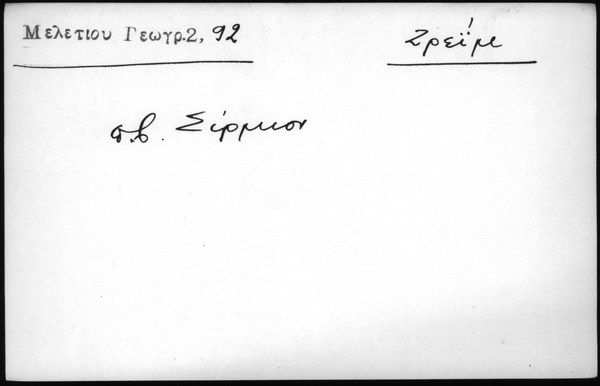 Μελετίου Γεωγρ.2, 92
Ζρεΐμ
σ.β. Σίρμιον